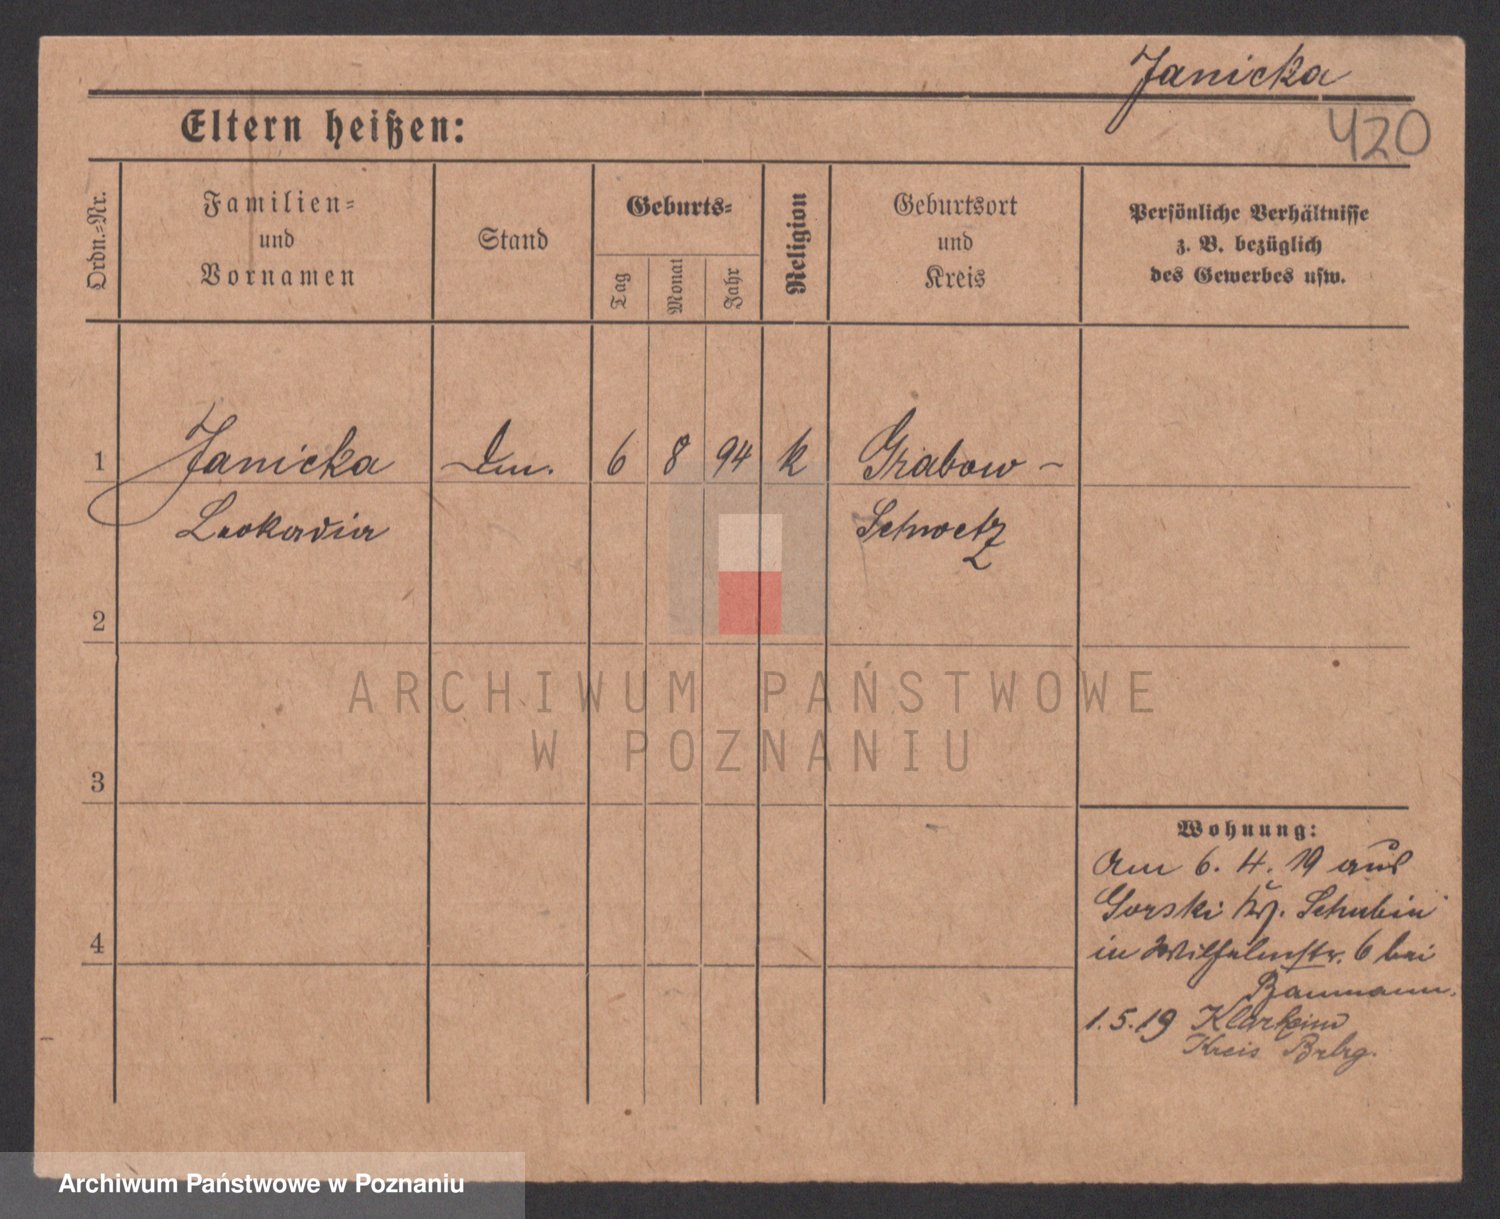 Janicka
420
Eltern heißen:
Ordn.=Nr.
Familien=
und
Vornamen
Stand
Geburts=
Tag
Monat
Jahr
Religion
Geburtsort
und
Kreis
Persönliche Verhältnisse
z. B. bezüglich
des Gewerbes usw.
1 Janicka 6 8 94 k Grabow -
Leokadia Schwetz
2
ARCHIWUM PAŃSTWOWE
W POZNANIU
3
Wohnung:
Am 6. 4. 19 aus
Gorski Kr. Schubin
4
in Wilhelmstr. 6 bei
Baumann.
1.5.19
Kreis Brbg.
Archiwum Państwowe w Poznaniu